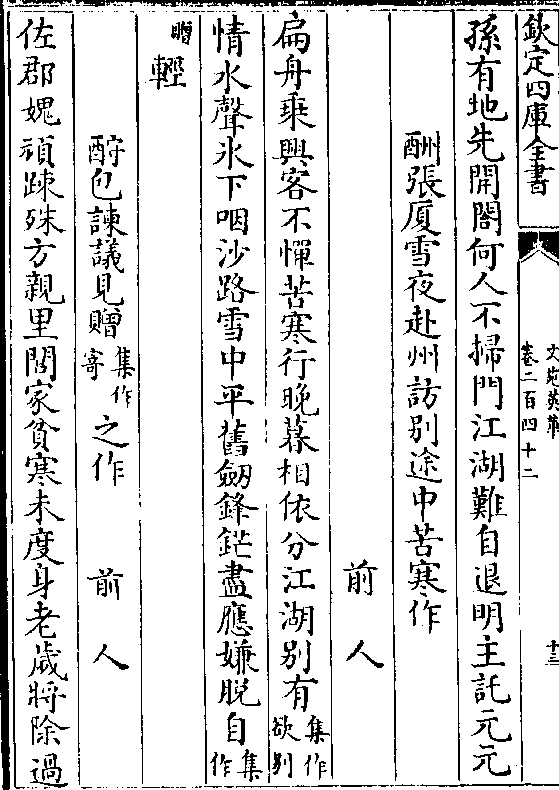 欽定四庫全書
文苑英華
卷二百四十二
十三
孫有地先開閤何人不掃門江湖難自退明主託元元
酬張厦雪夜赴州訪别途中苦寒作
前人
扁舟乗興客不憚苦寒行晚暮相依分江湖别有集作欲别
情水聲氷下咽沙路雪中平舊劒鋒鋩盡應嫌脱自集作贈
輕
酧包諫議見贈集作寄之作
前人
佐郡媿頑踈殊方親里閭家貧寒未度身老歳將除過